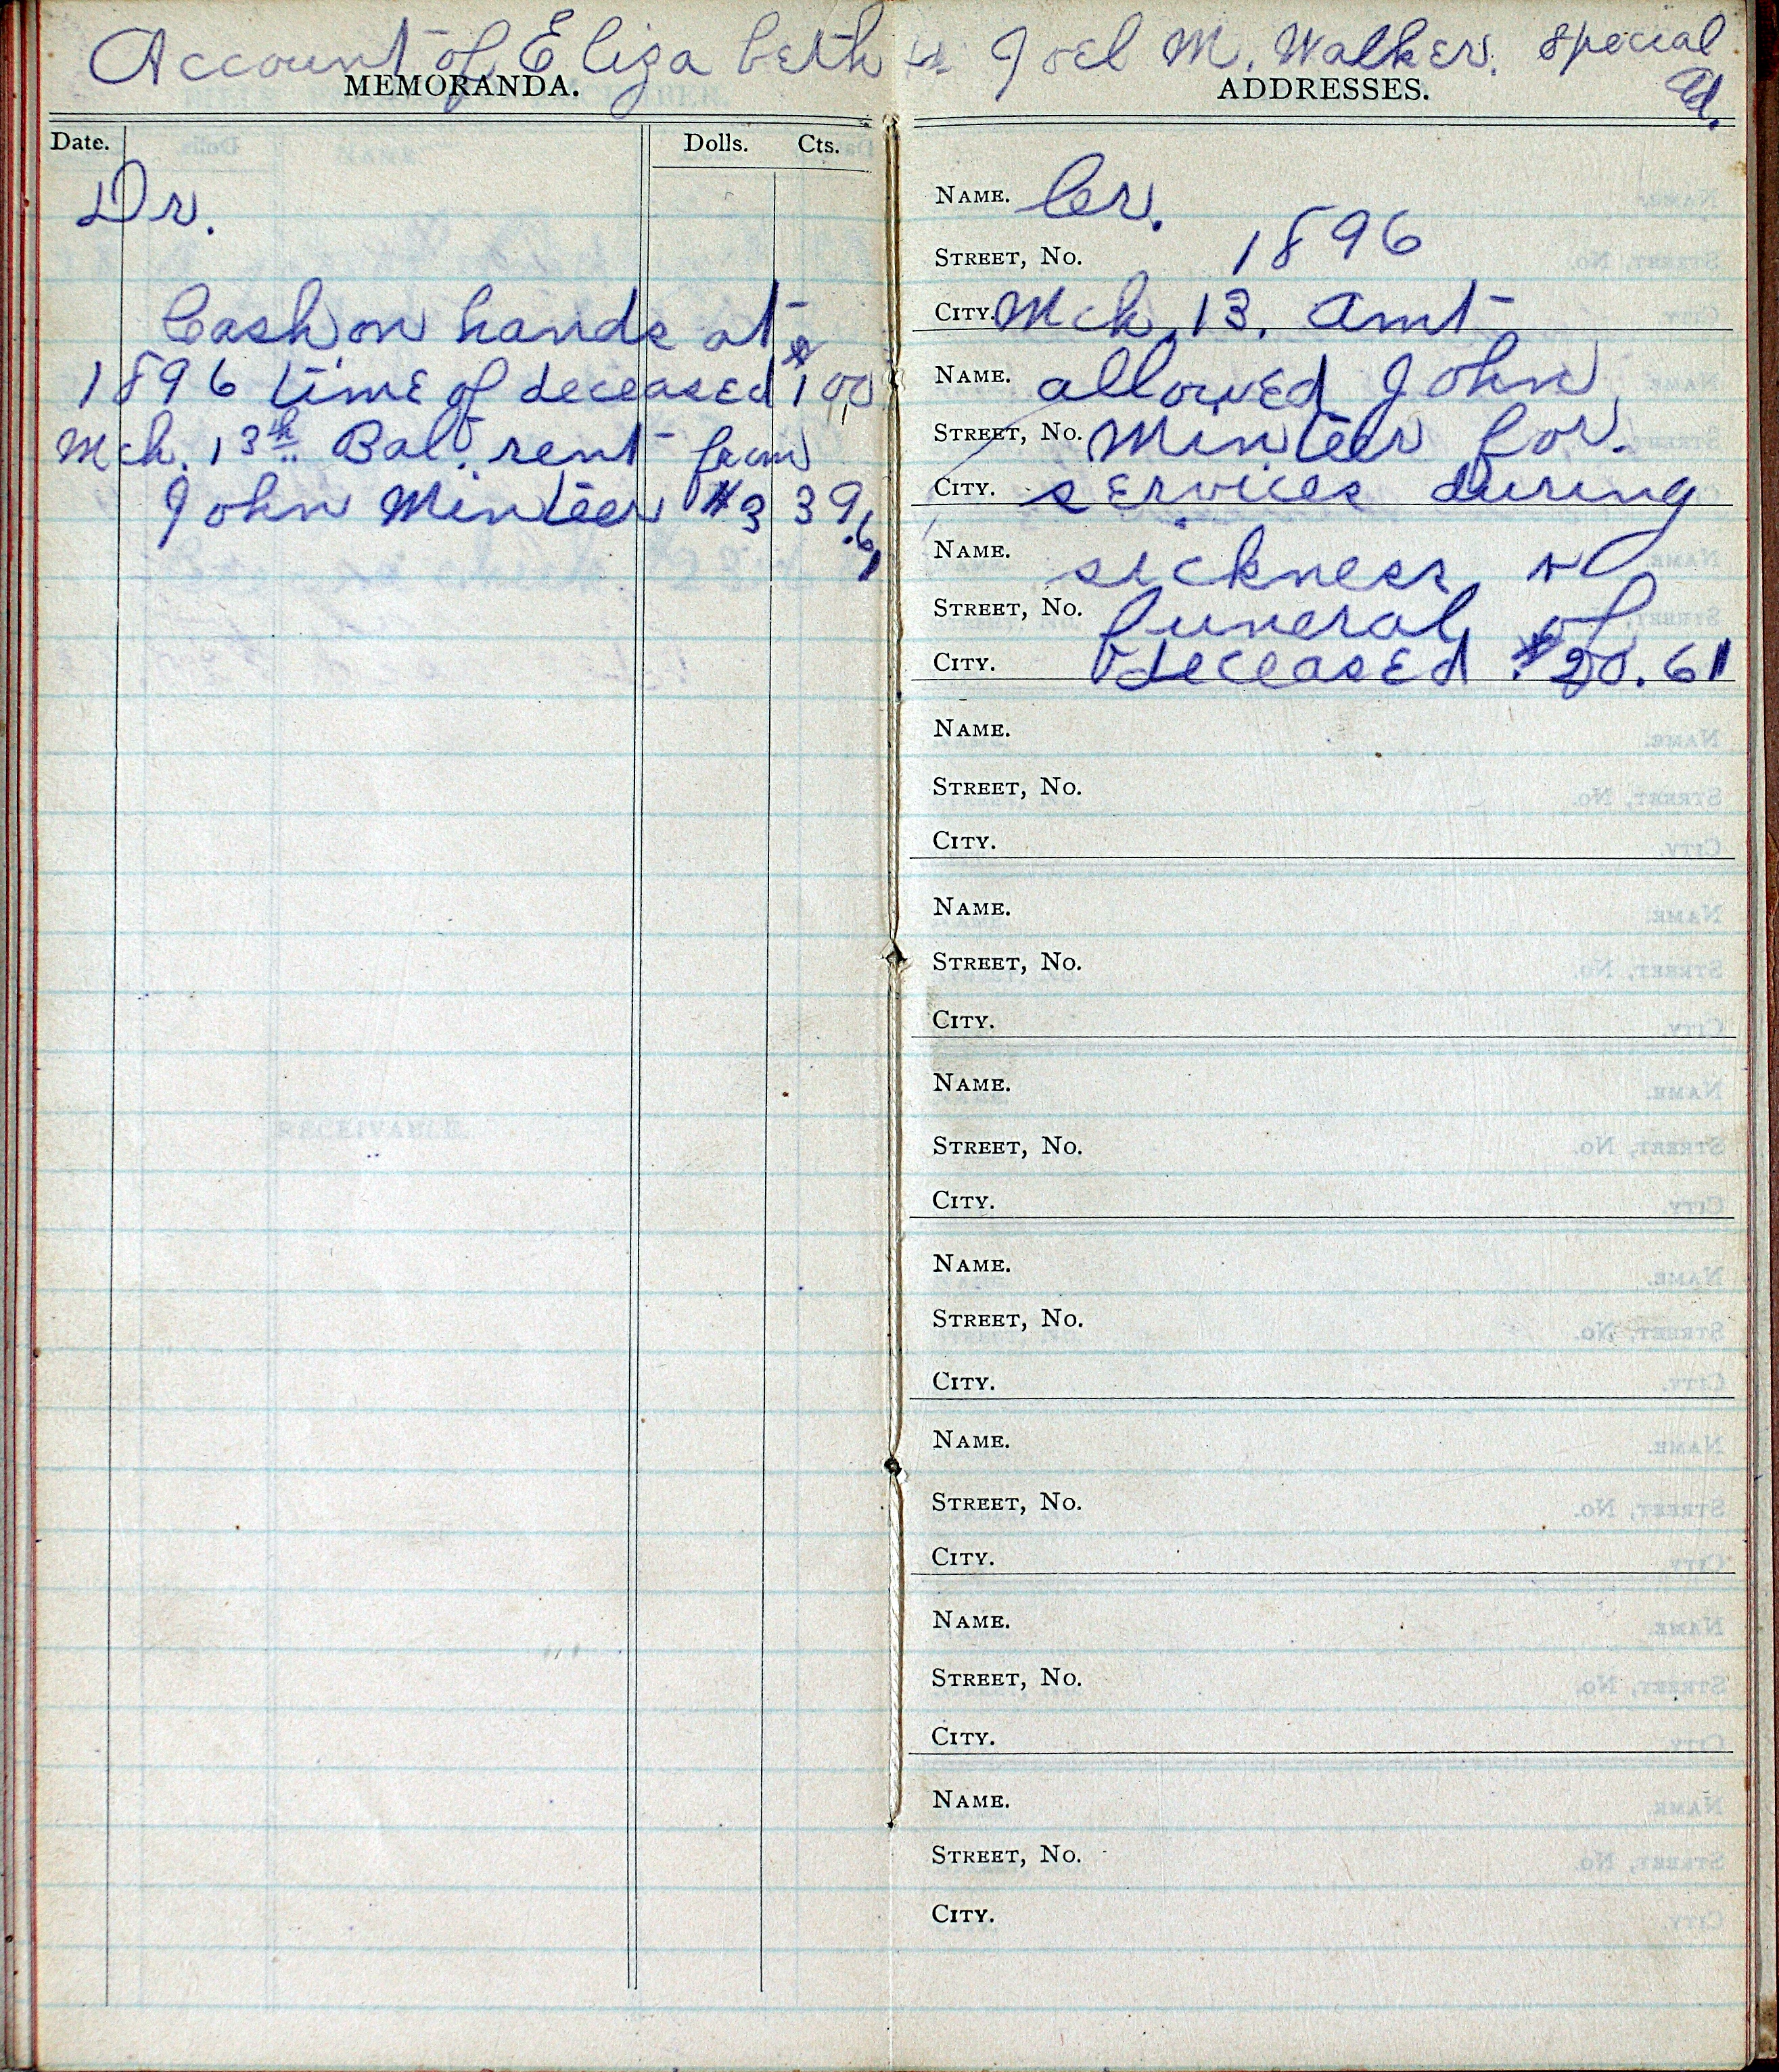 Account of Elizabeth & Joel M. Walker, Special Ad.
MEMORANDA.
Date. Dolls. Cts.
Dr.
Cash on hands at
1896 time of deceased $1 00
Mch. 13th Bal. rent from
John Minteer $3 39.61
ADDRESSES.
NAME. Cr.
STREET, No. 1896
CITY. Mch. 13. Amt
NAME. allowed John
STREET, No. Minteer for
CITY. services during
NAME. sickness &
STREET, No. funeral of
CITY. deceased $20.61
NAME.
STREET, No.
CITY.
NAME.
STREET, No.
CITY.
NAME.
STREET, No.
CITY.
NAME.
STREET, No.
CITY.
NAME.
STREET, No.
CITY.
NAME.
STREET, No.
CITY.
NAME.
STREET, No.
CITY.